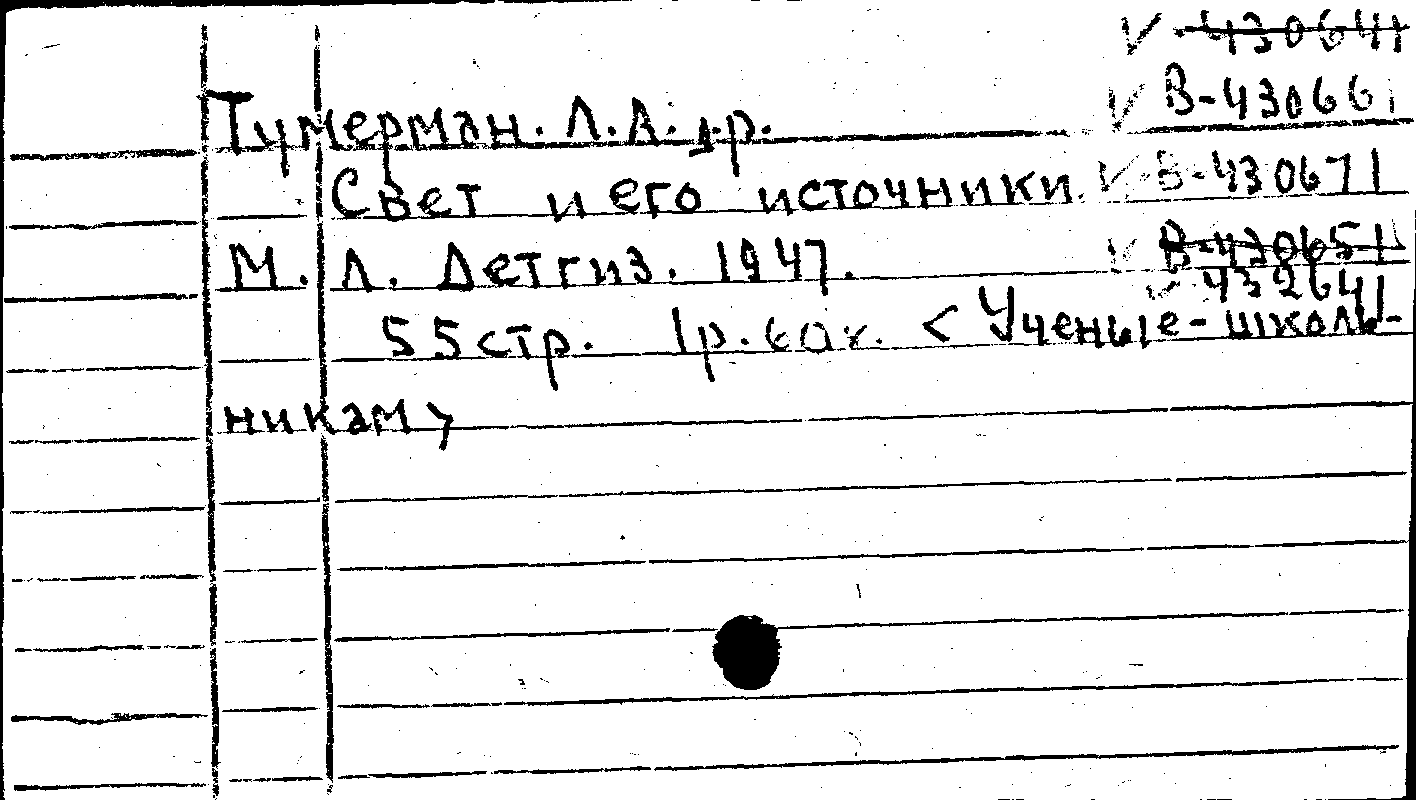 ✓ 430641
✓ В-430661
Тумерман. Л.А. д.р.
✓ В-430671
Свет и его источники.
✓ В-430651
М. Л. Детгиз. 1947.
✓ 432641
55стр. 1р.60к. < Ученые- школь-
никам >